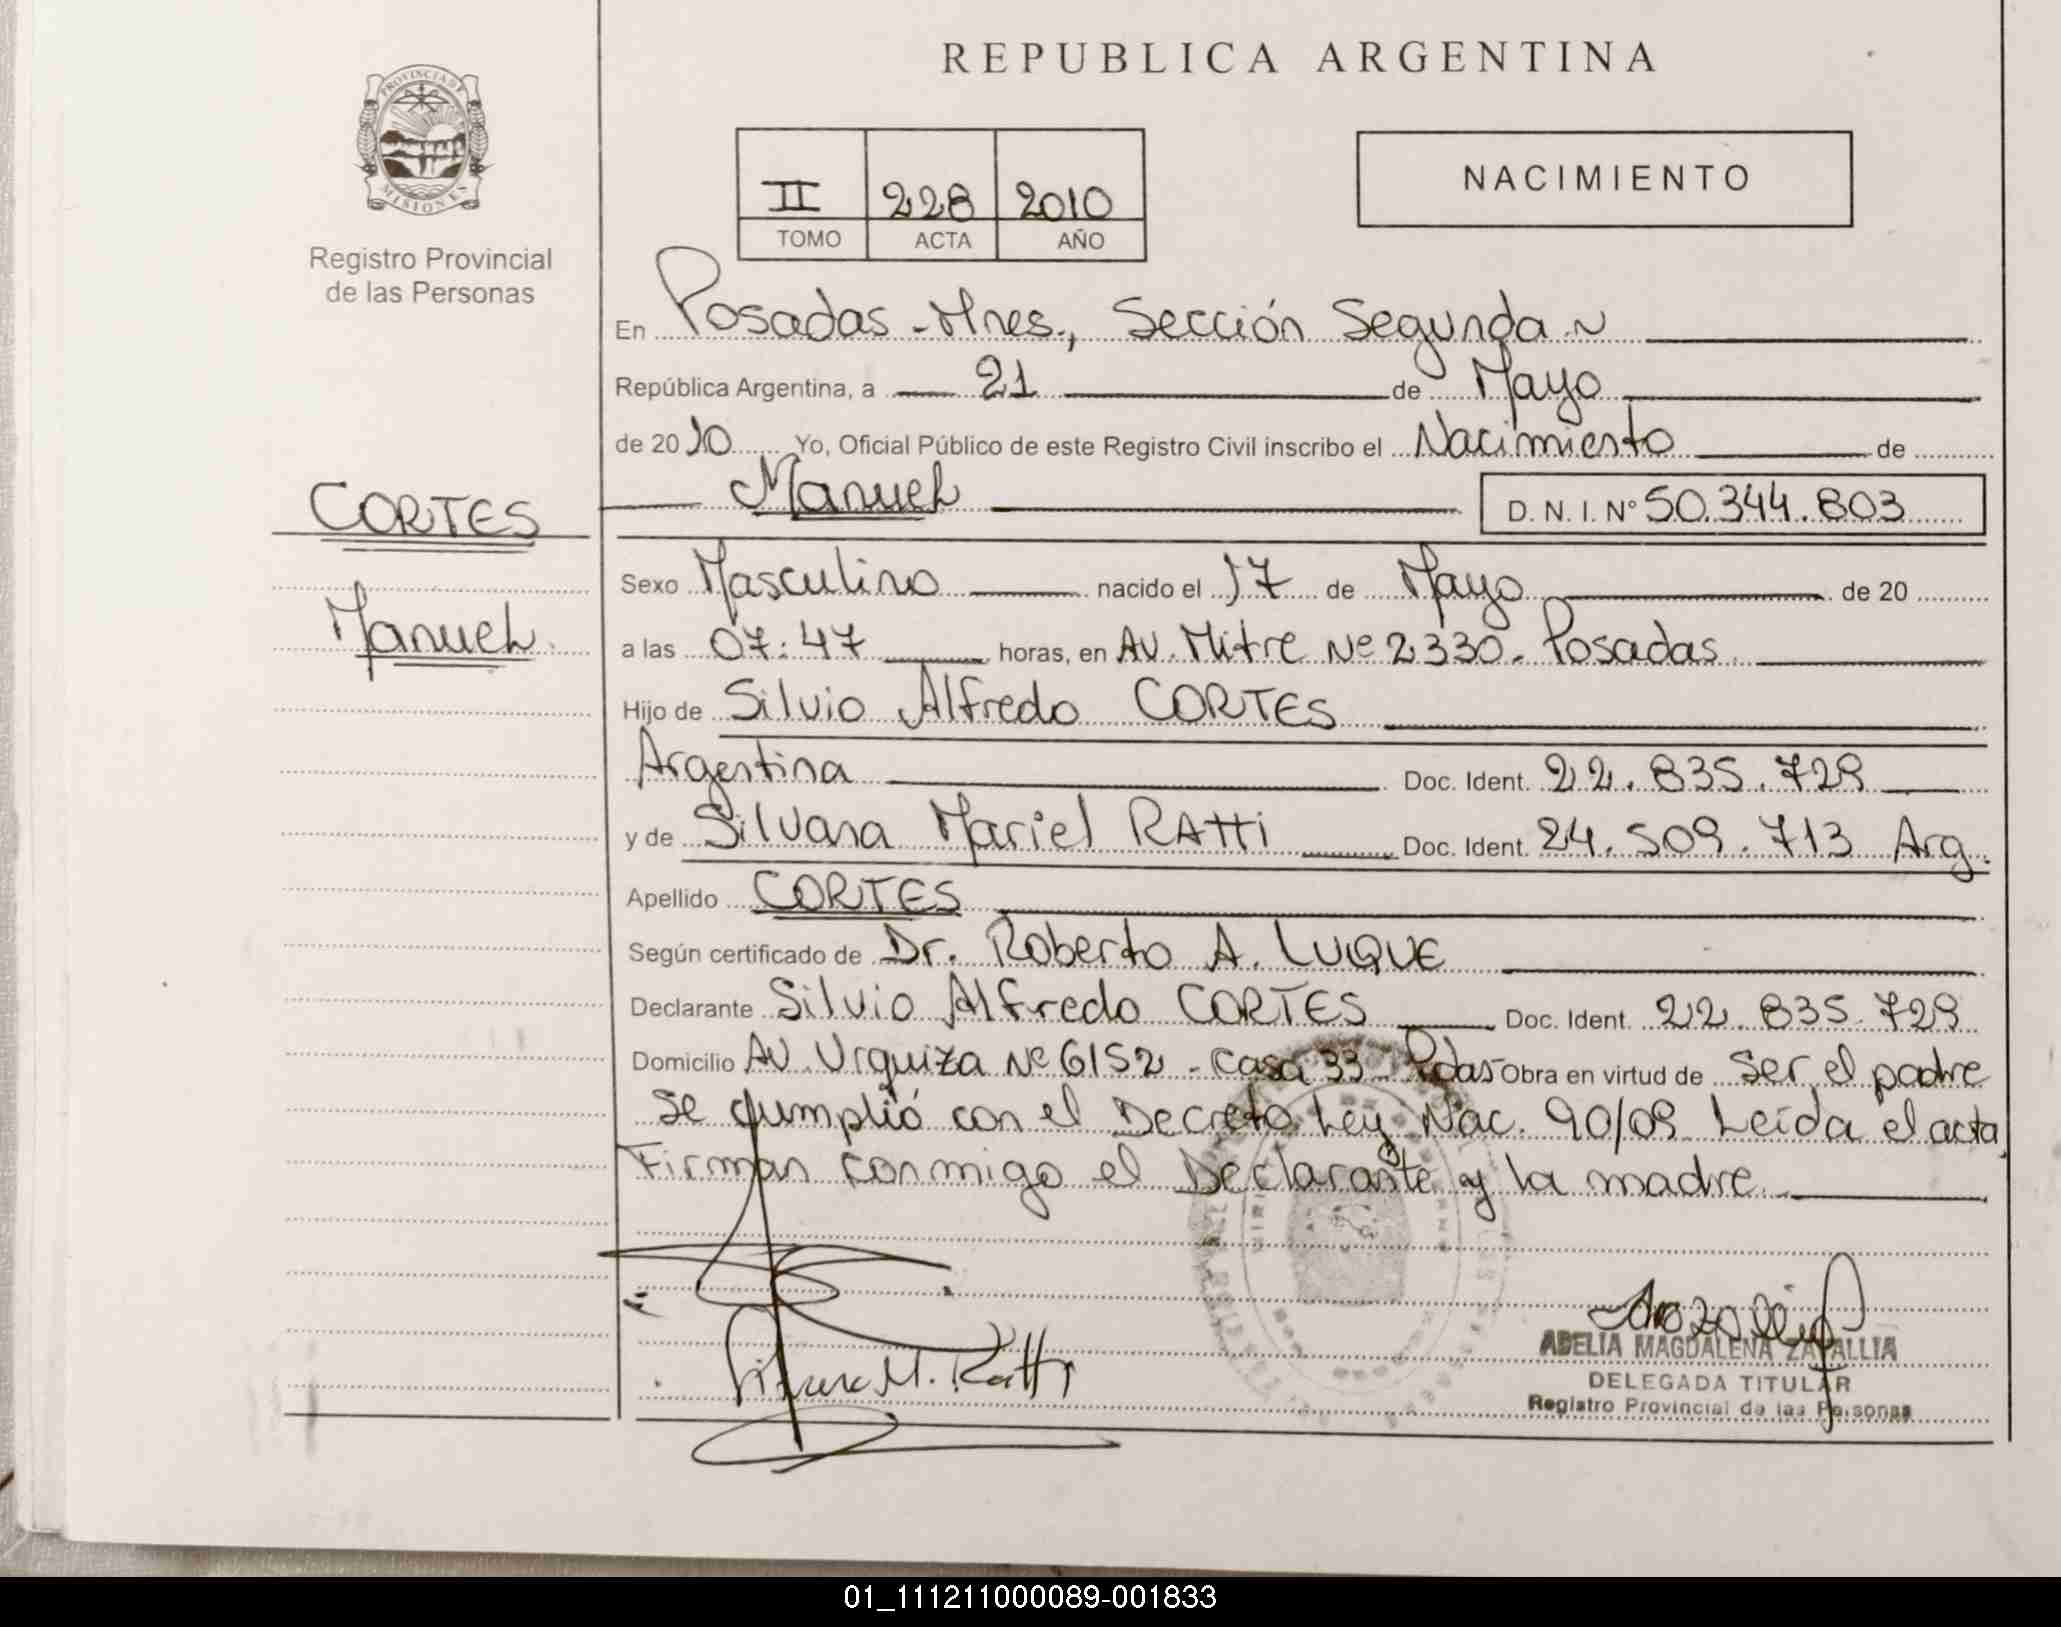 REPUBLICA ARGENTINA
PROVINCIA DE
MISIONES
Registro Provincial
de las Personas
II 228 2010
TOMO ACTA AÑO
NACIMIENTO
En Posadas - Mnes., Sección Segunda
República Argentina, a 21 de Mayo
de 2010 Yo, Oficial Público de este Registro Civil inscribo el Nacimiento de
Manuel D. N. I. Nº 50.344.803
CORTES
Manuel
Sexo Masculino nacido el 17 de Mayo de 20
a las 07:47 horas, en AV. Mitre Nº 2330. Posadas
Hijo de Silvio Alfredo CORTES
Argentina Doc. Ident. 22.835.729
y de Silvana Mariel RATTI Doc. Ident. 24.509.713 Arg.
Apellido CORTES
Según certificado de Dr. Roberto A. LUQUE
Declarante Silvio Alfredo CORTES Doc. Ident. 22.835.729
Domicilio AV. Urquiza Nº 6152 - Casa 33 - Pdas - Obra en virtud de Ser el padre
Se cumplió con el Decreto Ley Nac. 90/09 Leída el acta,
Firman conmigo el Declarante y la madre
Silvana M. Ratti
DELEGADA TITULAR
ADELIA MAGDALENA
Registro Provincial de las Personas
01_111211000089-001833